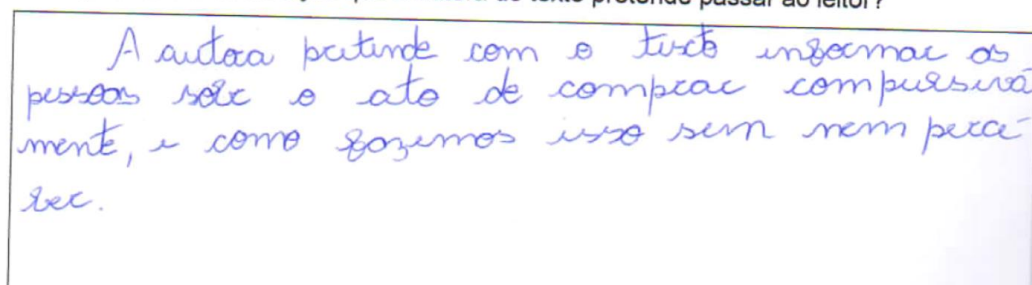 do texto pretende passar ao leitor?
A autora pretende com o texto informar as
pessoas sobre o ato de comprar compursivá
mente, e como fazemos isso sem nem perce-
ber.